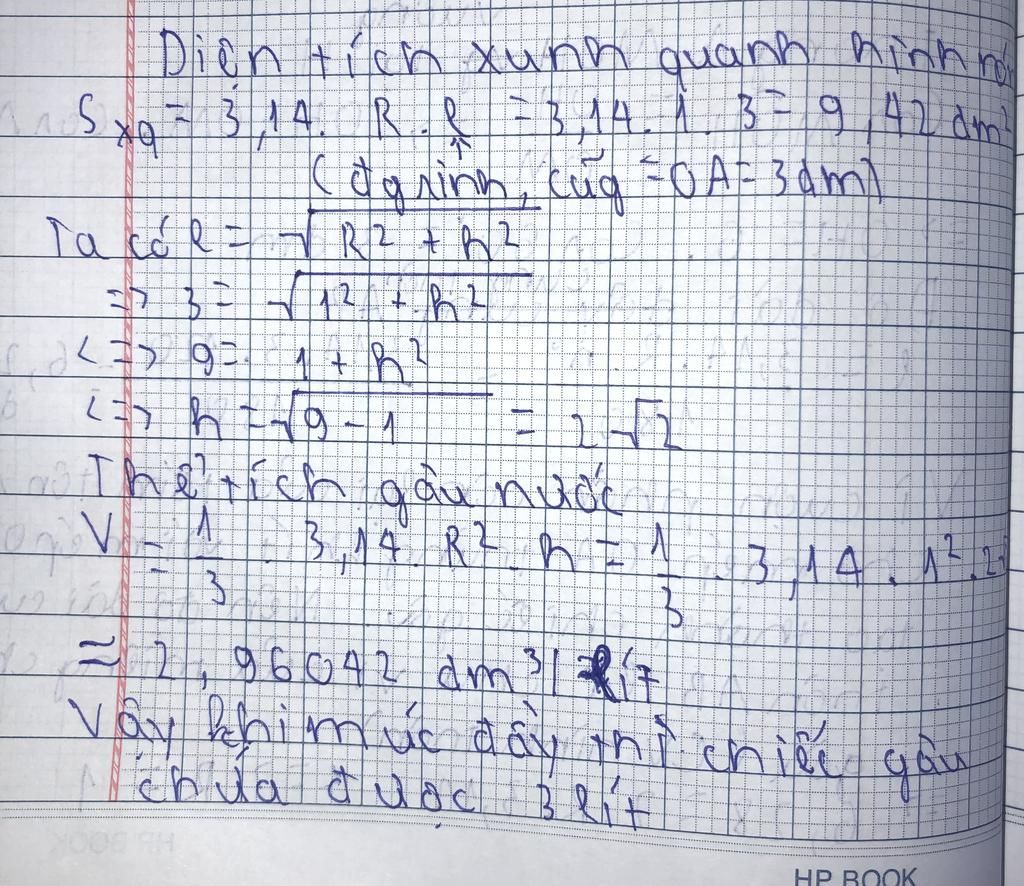 Diện tích xunh quanh hình nó
Sxq = 3,14. R. l = 3,14. 1. 3 = 9,42 dm²
↑
(đg sinh, cũg = OA = 3dm)
Ta có l = √(R² + h²)
=> 3 = √(1² + h²)
<=> 9 = 1 + h²
<=> h = √(9 - 1) = 2√2
Thể tích gầu nước
V = 1/3 . 3,14. R². h = 1/3 . 3,14 . 1² . 2√
≈ 2,96042 dm³ | lít
Vậy khi múc đầy thì chiếc gầu
chứa được 3 lít
HP BOOK